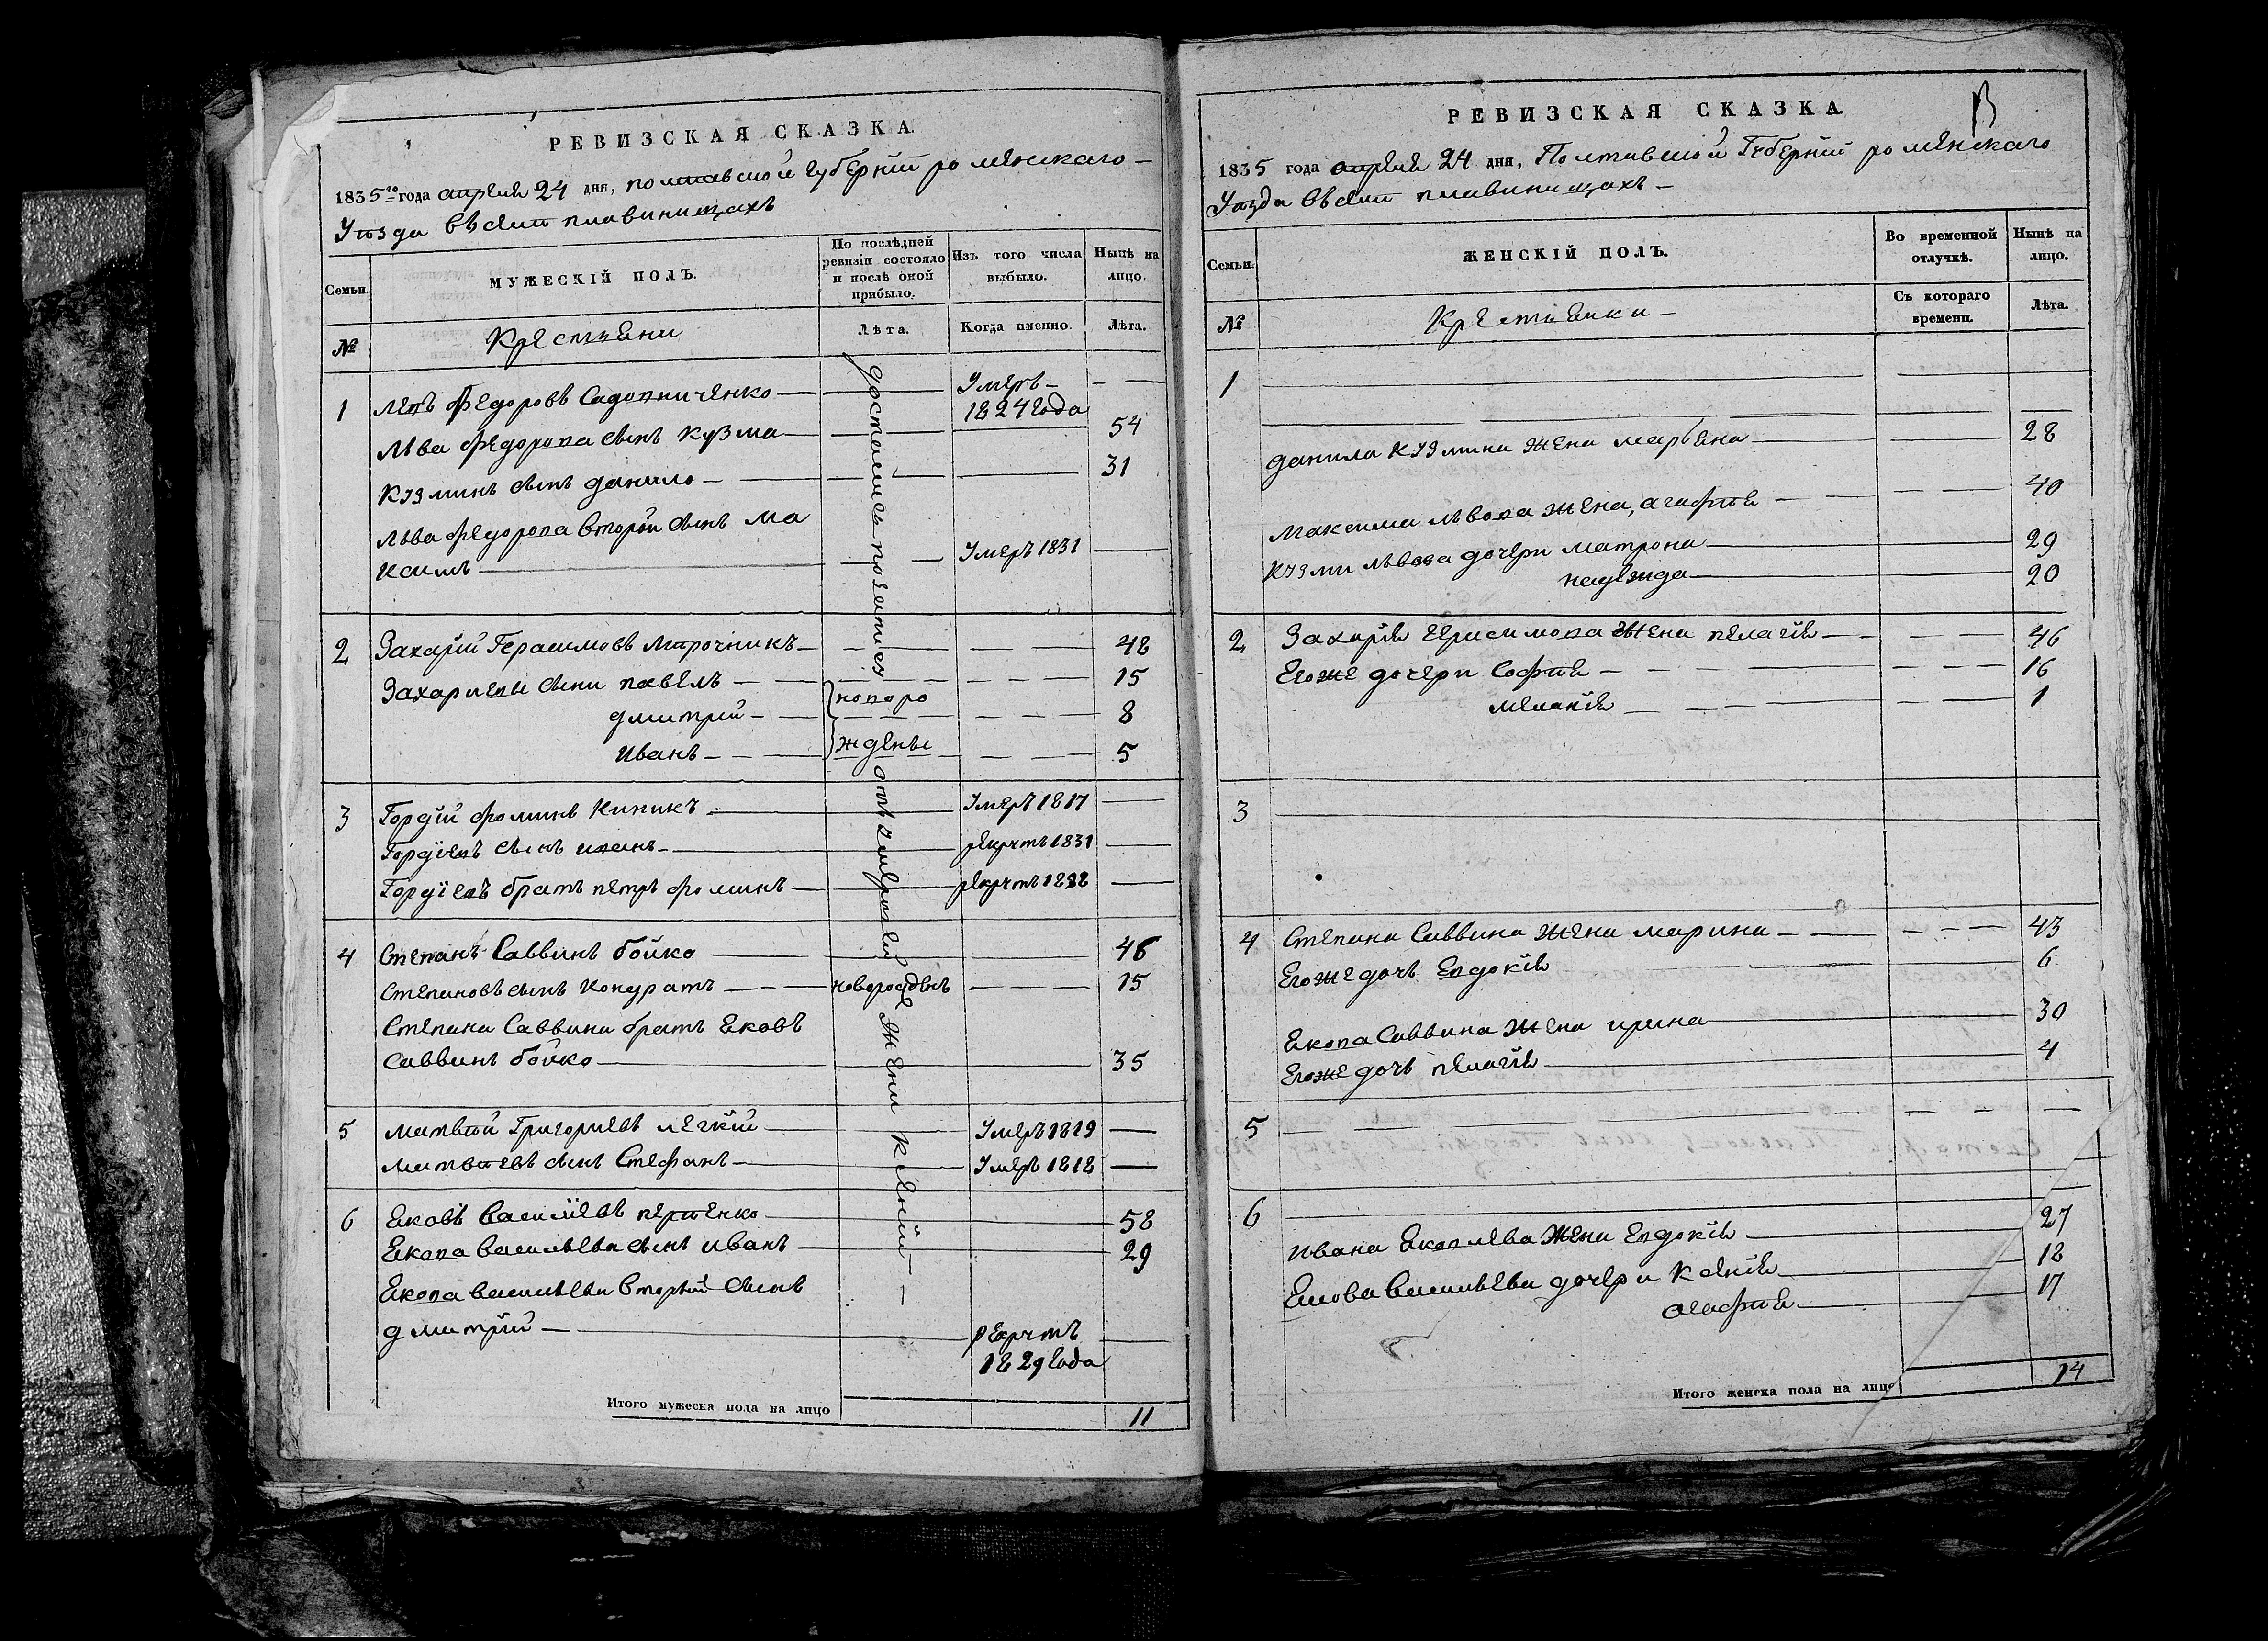 РЕВИЗСКАЯ СКАЗКА
1835го года апреля 24 дня, полтавской губернїи роменского
Уѣзда въ селѣ плавинищахъ
Семьи.
МУЖЕСКІЙ ПОЛЪ.
По послѣдней ревизіи состояло и послѣ оной прибыло.
Изъ того числа выбыло.
Нынѣ на лицо.
№
Крестьяни
Лѣта.
Когда именно.
Лѣта.
1 левъ Федоровъ Садовниченко Умеръ 1824 года
Лва Федорова сынъ кузма 54
Кузминъ сынъ данило 31
Лва федорова второй сынъ ма
ксимъ Умеръ 1831
2 Захарїй Герасимовъ 48
Захариевы сыни павелъ 15
дмитрїй новоро 8
иванъ жденые 5
3 Гордїй фоминъ Киникъ Умеръ 1817
Гордїевъ сынъ иванъ рекрутъ 1831
Гордїевъ братъ петръ фоминъ рекрутъ 1828
4 Степанъ Саввинъ бойко 46
Степановъ сынъ Кондратъ новорожденъ 15
Степана Саввина братъ Яковъ
Саввинъ бойко 35
5 матвѣй Григориевъ легкїй Умеръ 1829
матвѣевъ сынъ Стефанъ Умеръ 1818
6 Яковъ Василїевъ 58
Якова василъева сынъ иванъ 29
Якова василъева вторый сынъ
дмитрїй рекрутъ 1829 года
Итого мужеска пола на лицо 11
РЕВИЗСКАЯ СКАЗКА
1835 года апреля 24 дня, Полтавской Губернїи роменского
Уѣзда въ селѣ плавинищахъ
Семьи.
ЖЕНСКІЙ ПОЛЪ.
Во временной отлучкѣ.
Нынѣ на лицо.
№
Крестьянки
Съ котораго времени.
Лѣта.
1
данила кузмина жена марьяна 28
максима лвова жена, агафѣя 40
Кузми лвова дочери матрона 29
надежда 20
2 Захарїя герасимова жена пелагїя 46
Егоже дочери Софѣя 16
меланїя 1
3
4 Степана Саввина жена марина 43
Егоже дочъ Евдокїя 6
Якова Саввина жена ирина 30
Егоже дочъ пелагїя 4
5
6
ивана Яковлева жена Евдокїя 27
Якова василъева дочери Ксенїя 18
агафѣя 17
Итого женска пола на лицо 14